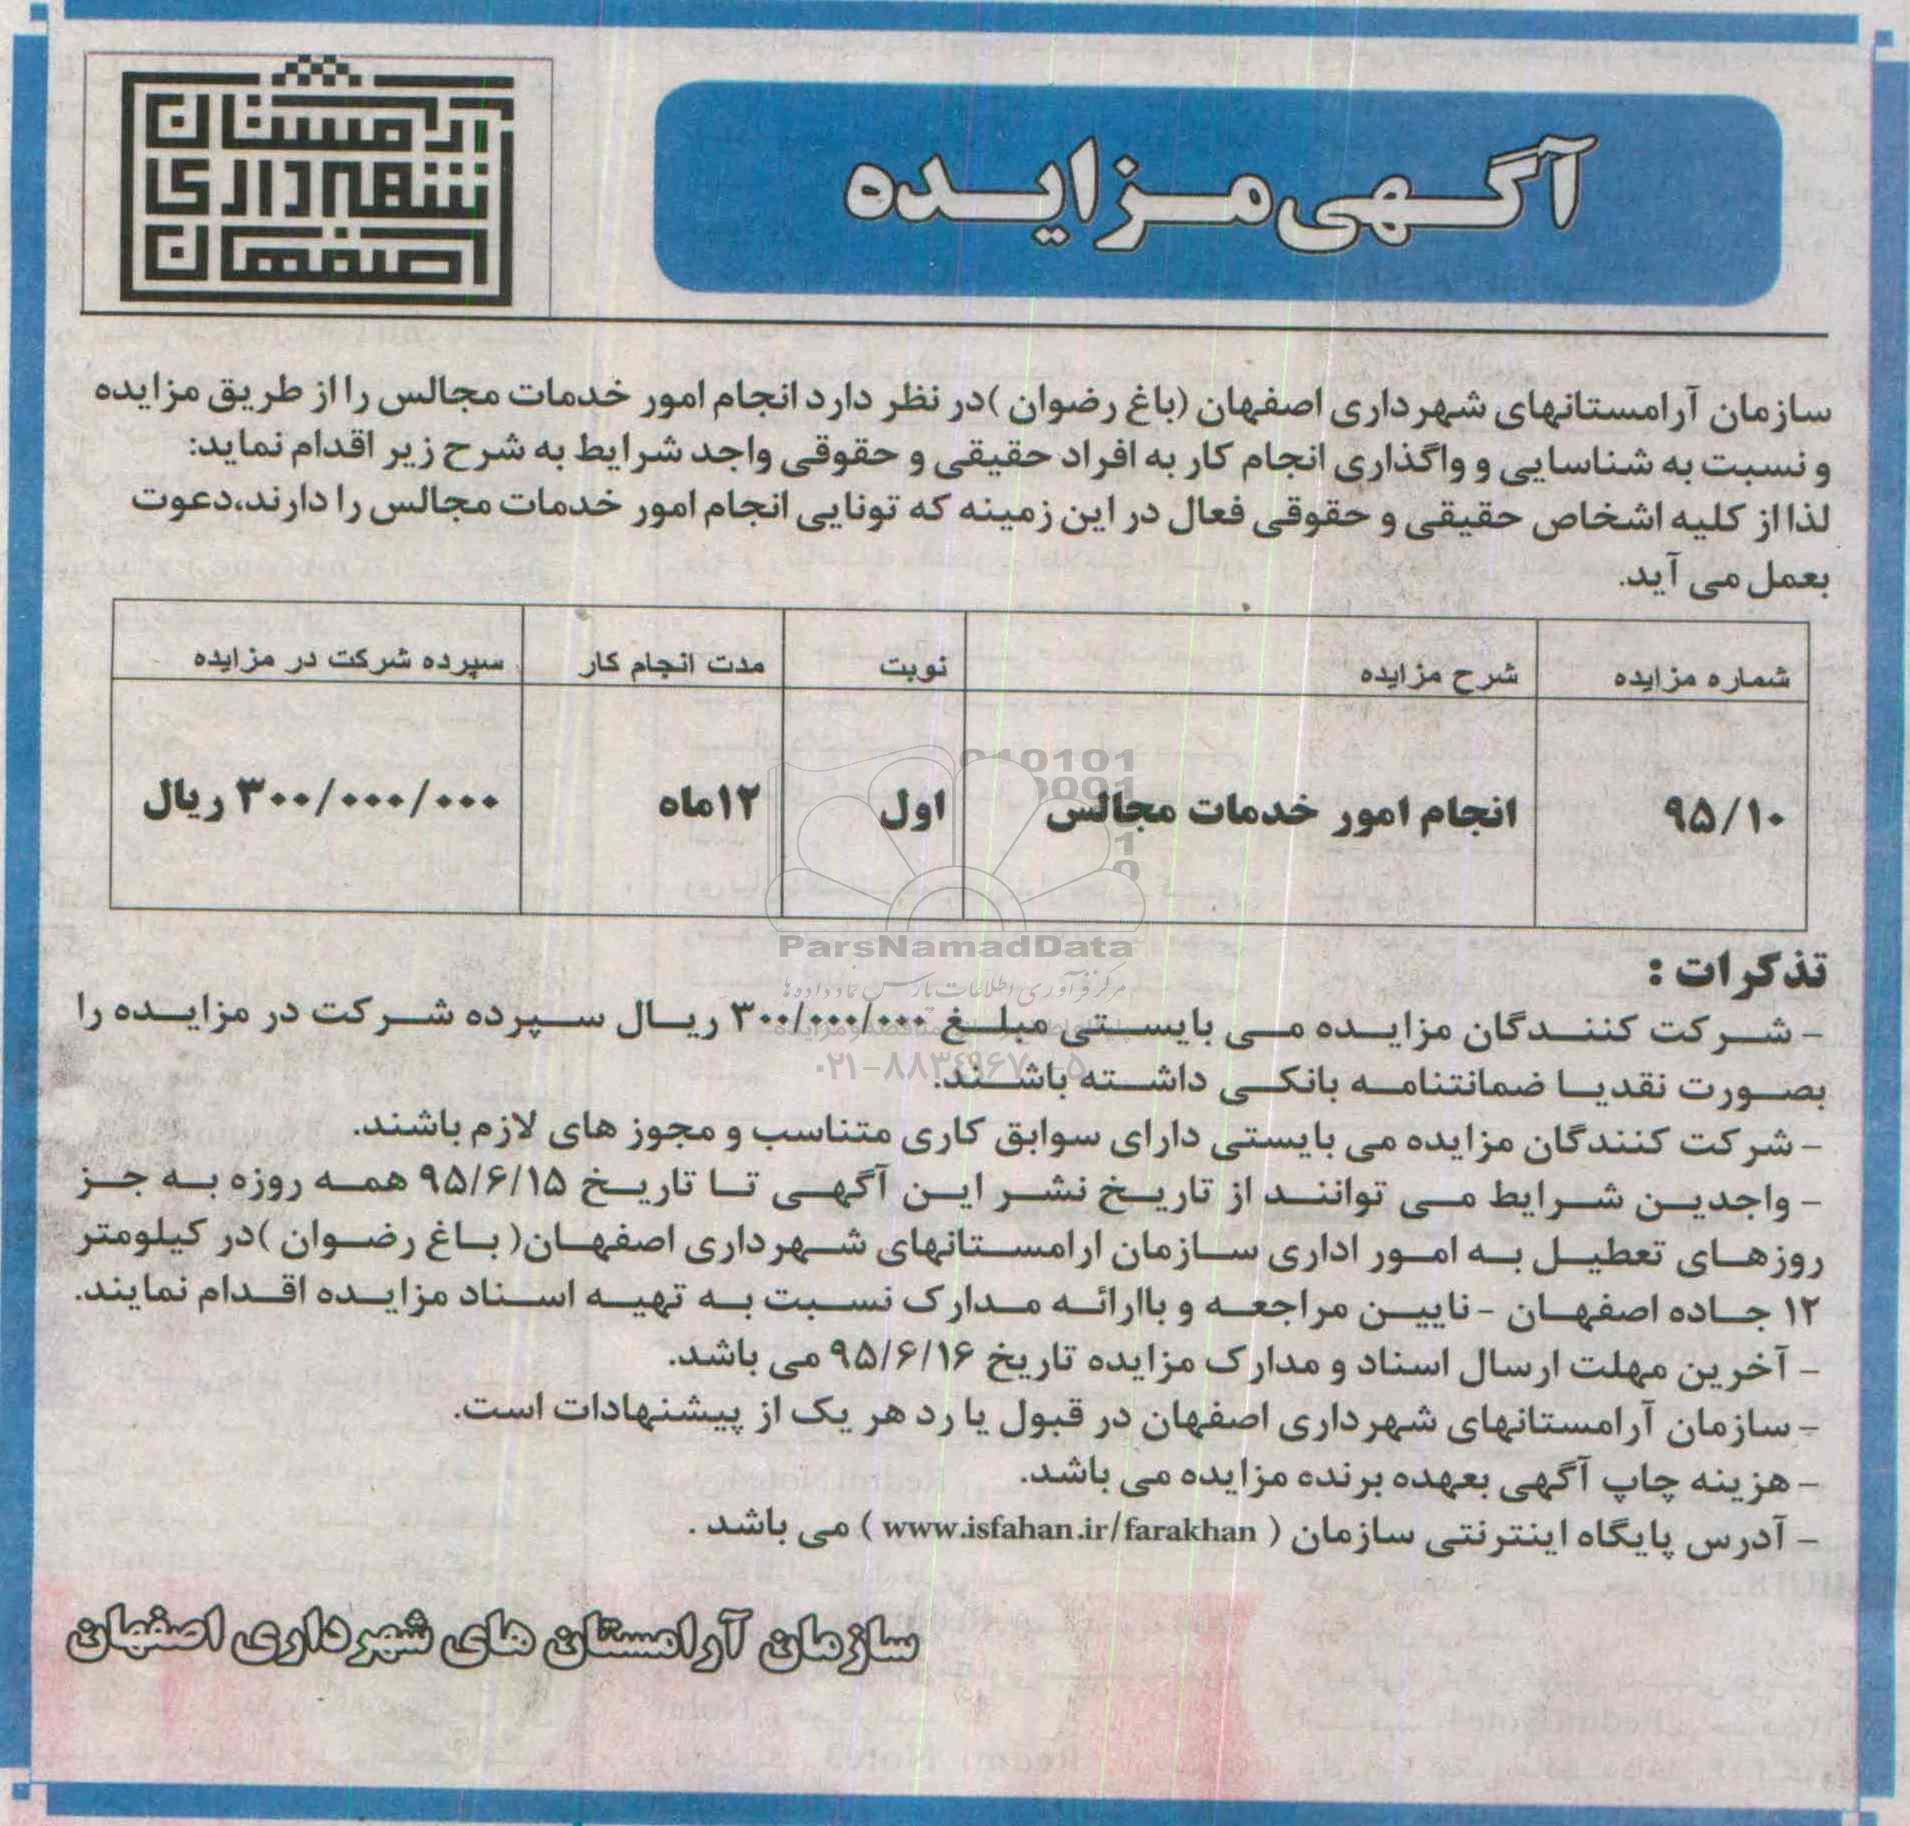 آرامستان
شهرداری
اصفهان
آگهی مزایده
سازمان آرامستانهای شهرداری اصفهان (باغ رضوان )در نظر دارد انجام امور خدمات مجالس را از طریق مزایده
و نسبت به شناسایی و واگذاری انجام کار به افراد حقیقی و حقوقی واجد شرایط به شرح زیر اقدام نماید:
لذا از کلیه اشخاص حقیقی و حقوقی فعال در این زمینه که تونایی انجام امور خدمات مجالس را دارند،دعوت
بعمل می آید.
شماره مزایده شرح مزایده نوبت مدت انجام کار سپرده شرکت در مزایده
۹۵/۱۰ انجام امور خدمات مجالس اول ۱۲ماه ۳۰۰/۰۰۰/۰۰۰ ریال
ParsNamadData
مرکز فرآوری اطلاعات پارس نماد داده ها
۰۲۱-۸۸۳۴۹۶۷۰-۵
تذکرات :
- شرکت کنندگان مزایده می بایستی مبلغ ۳۰۰/۰۰۰/۰۰۰ ریال سپرده شرکت در مزایده را
بصورت نقدیا ضمانتنامه بانکی داشته باشند.
- شرکت کنندگان مزایده می بایستی دارای سوابق کاری متناسب و مجوز های لازم باشند.
- واجدین شرایط می توانند از تاریخ نشر این آگهی تا تاریخ ۹۵/۶/۱۵ همه روزه به جز
روزهای تعطیل به امور اداری سازمان ارامستانهای شهرداری اصفهان( باغ رضوان )در کیلومتر
۱۲ جاده اصفهان -نایین مراجعه و باارائه مدارک نسبت به تهیه اسناد مزایده اقدام نمایند.
- آخرین مهلت ارسال اسناد و مدارک مزایده تاریخ ۹۵/۶/۱۶ می باشد.
- سازمان آرامستانهای شهرداری اصفهان در قبول یا رد هر یک از پیشنهادات است.
- هزینه چاپ آگهی بعهده برنده مزایده می باشد.
- آدرس پایگاه اینترنتی سازمان ( www.isfahan.ir/farakhan ) می باشد .
سازمان آرامستان های شهرداری اصفهان